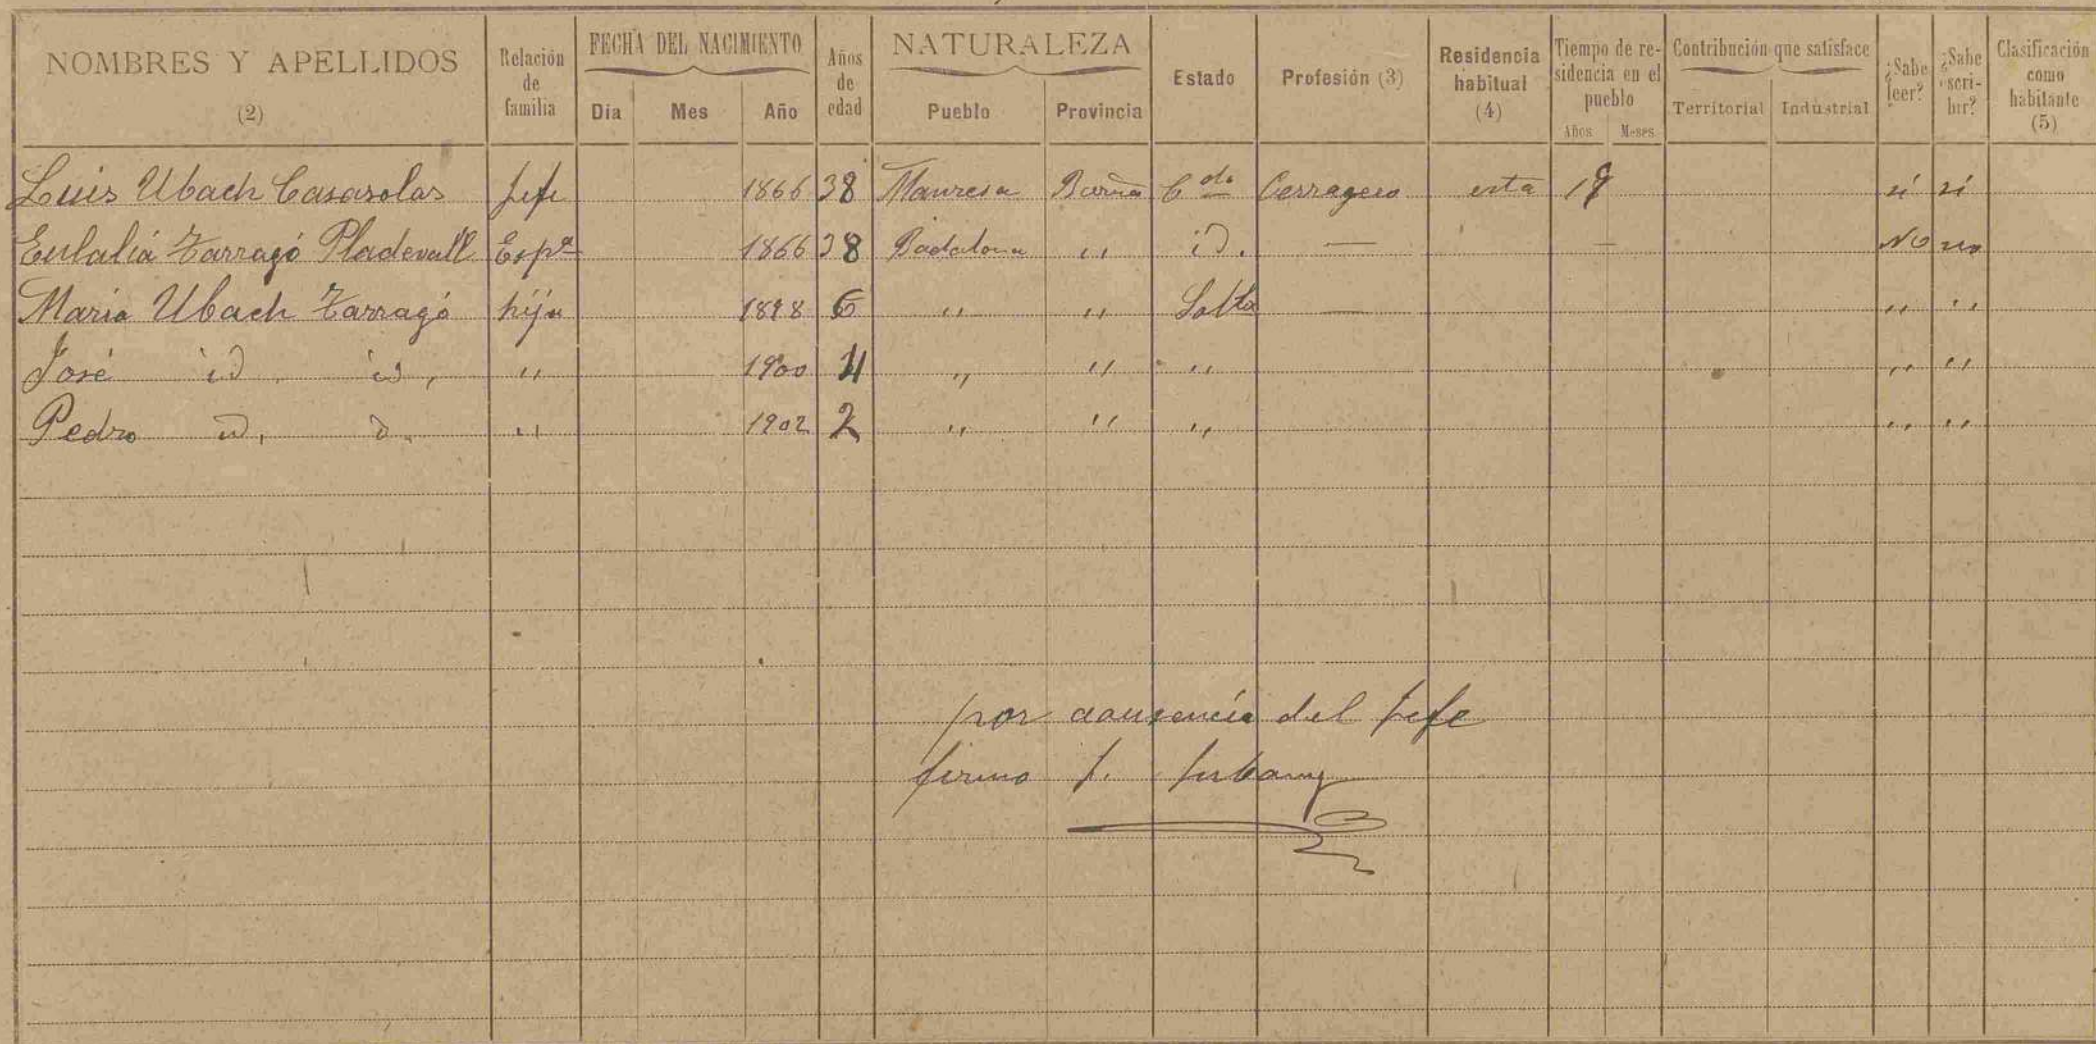 NOMBRES Y APELLIDOS (2) Relación de familia FECHA DEL NACIMIENTO Día Mes Año Años de edad NATURALEZA Pueblo Provincia Estado Profesión (3) Residencia habitual (4) Tiempo de residencia en el pueblo Años Meses Contribución que satisface Territorial Industrial ¿Sabe leer? ¿Sabe escribir? Clasificación como habitante (5)
Luis Ubach Casasolas Jefe 1866 38 Manresa Barña Cdo Cerragero esta sí sí
Eulalia Tarragó Pladevall Espª 1866 38 Badalona " id. — — No no
Maria Ubach Tarragó hija 1898 6 " " Solta — " "
José id id, " 1900 4 " " " " "
Pedro id, d. " 1902 2 " " " " "
por aausencia del Jefe
firmo J.